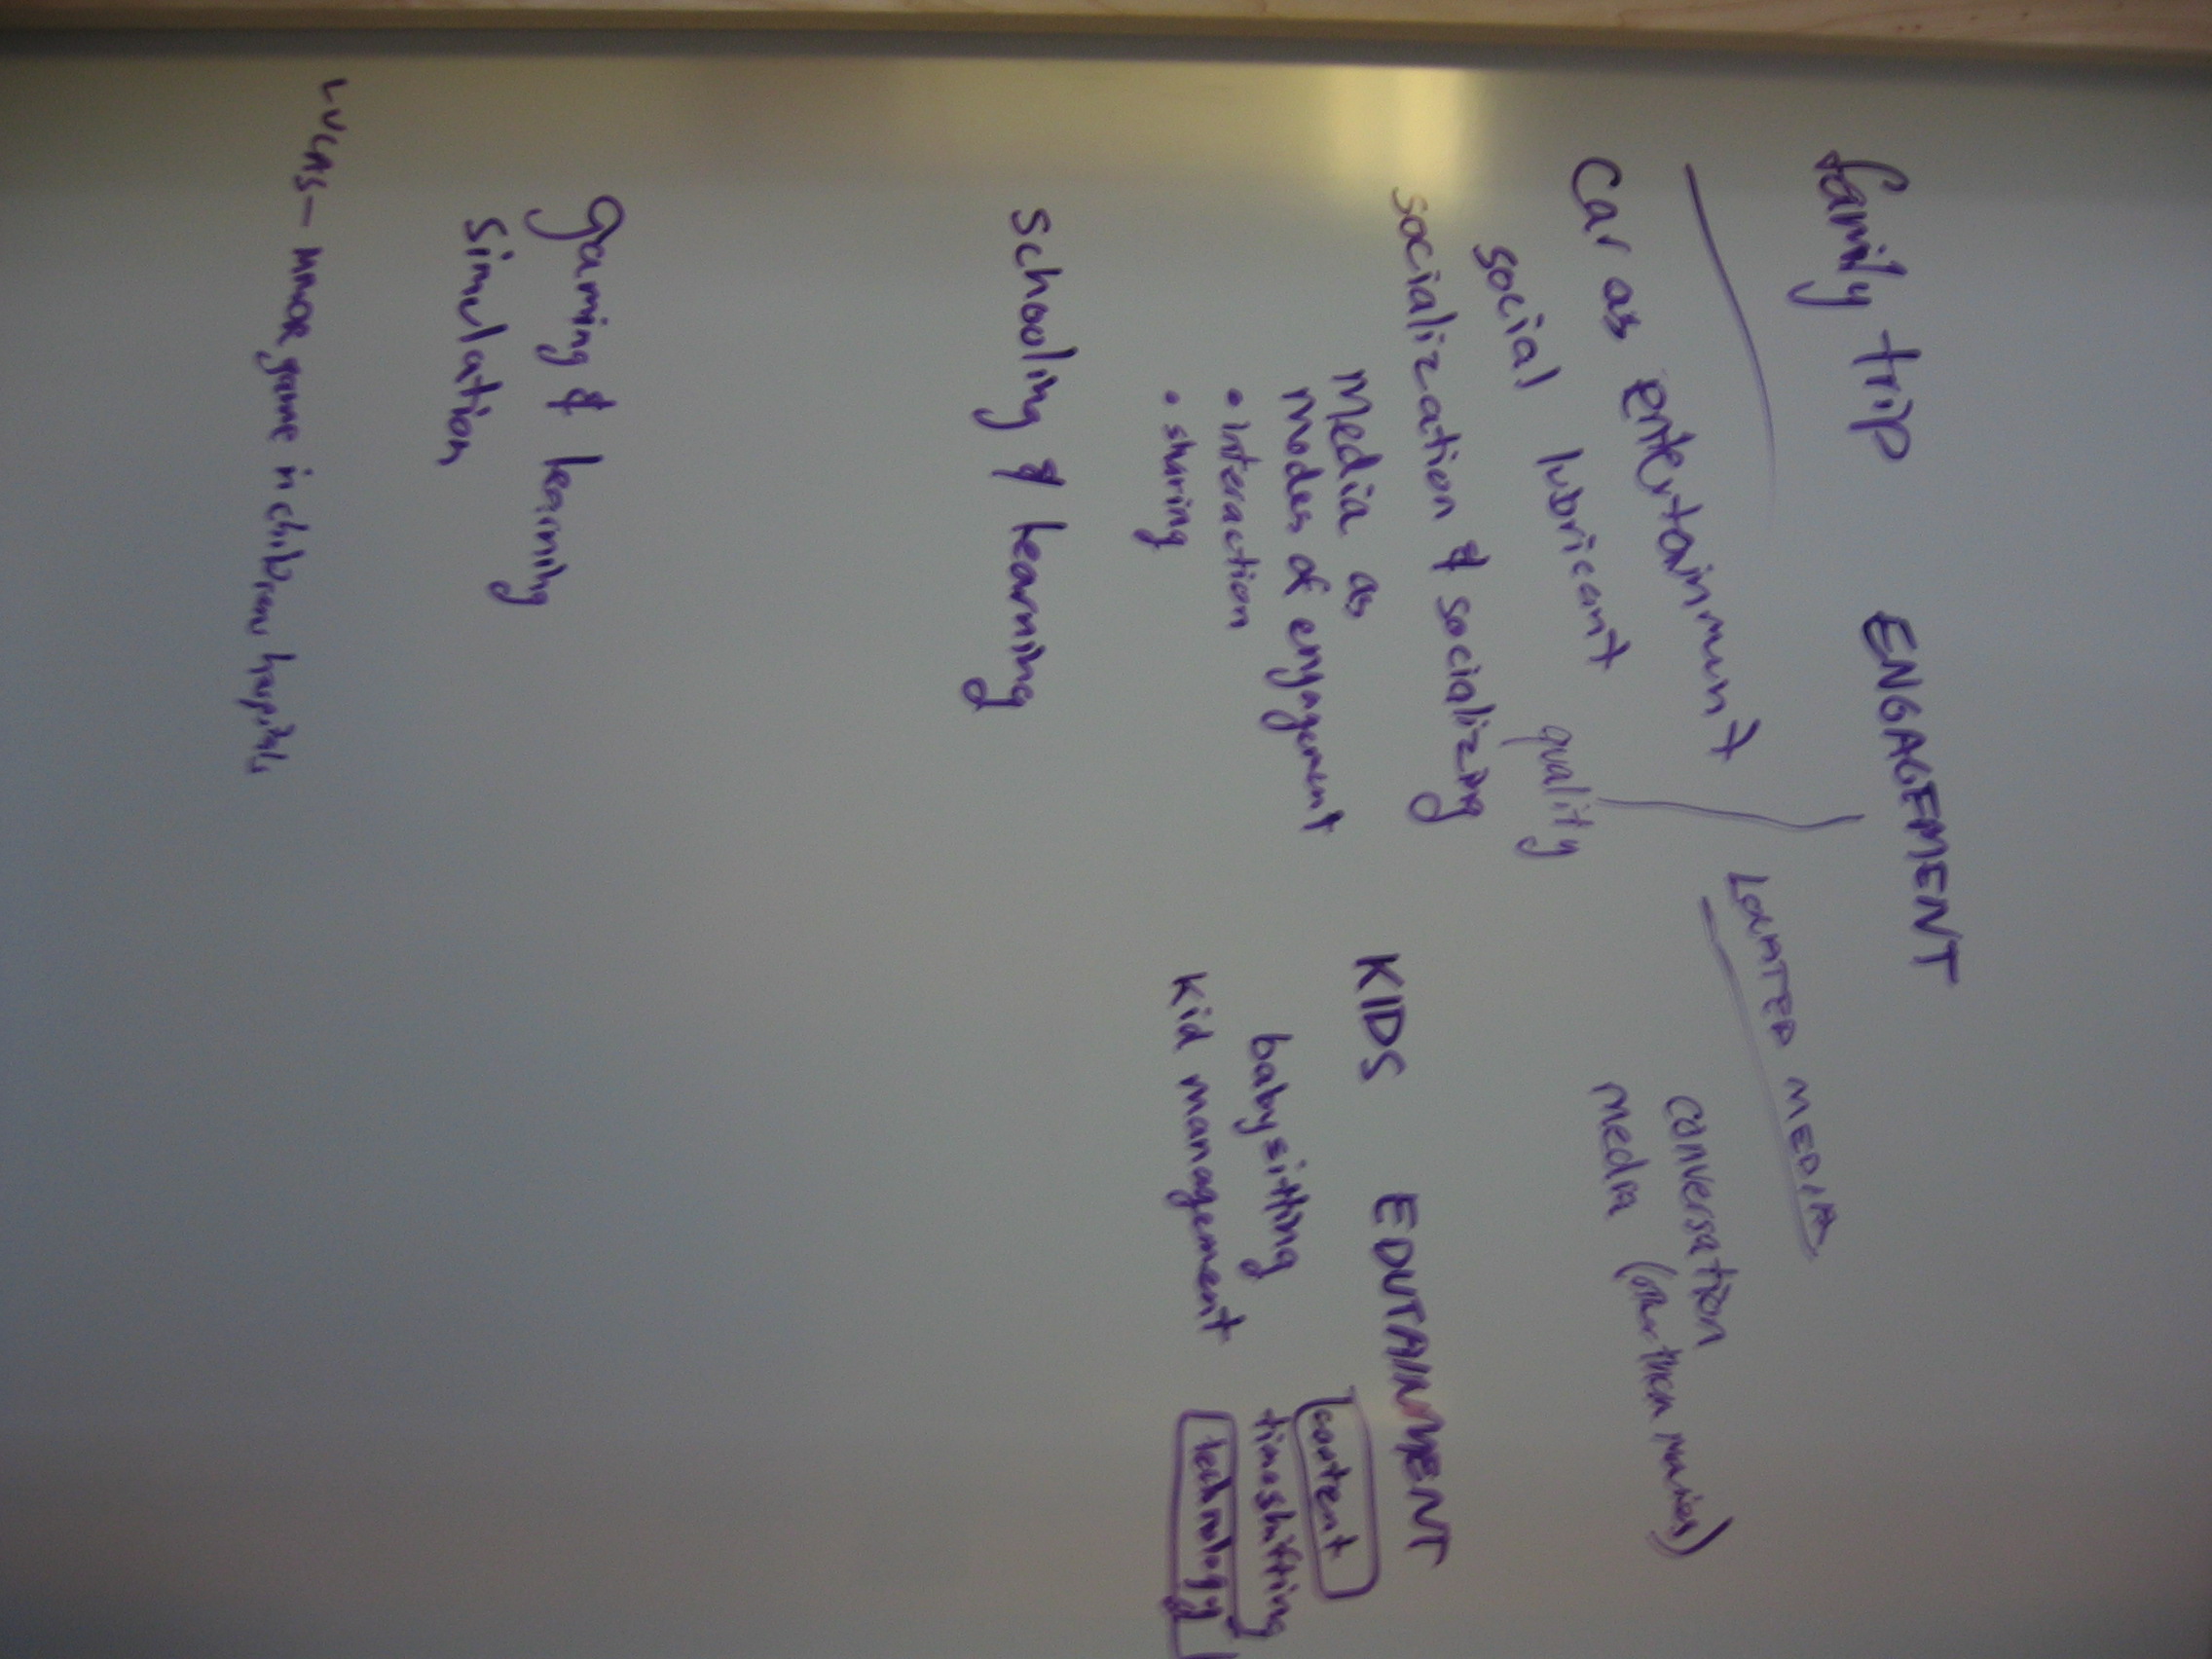 family trip
ENGAGEMENT
Car as entertainment
LOCATED MEDIA
social lubricant
quality
conversation
media (other than movies)
socialization & socializing
media as
modes of engagement
• interaction
• sharing
KIDS
EDUTAINMENT
babysitting
kid management
content
timeshifting
technology
schooling & learning
gaming & learning
simulation
LUCAS - game in childrens hospitals